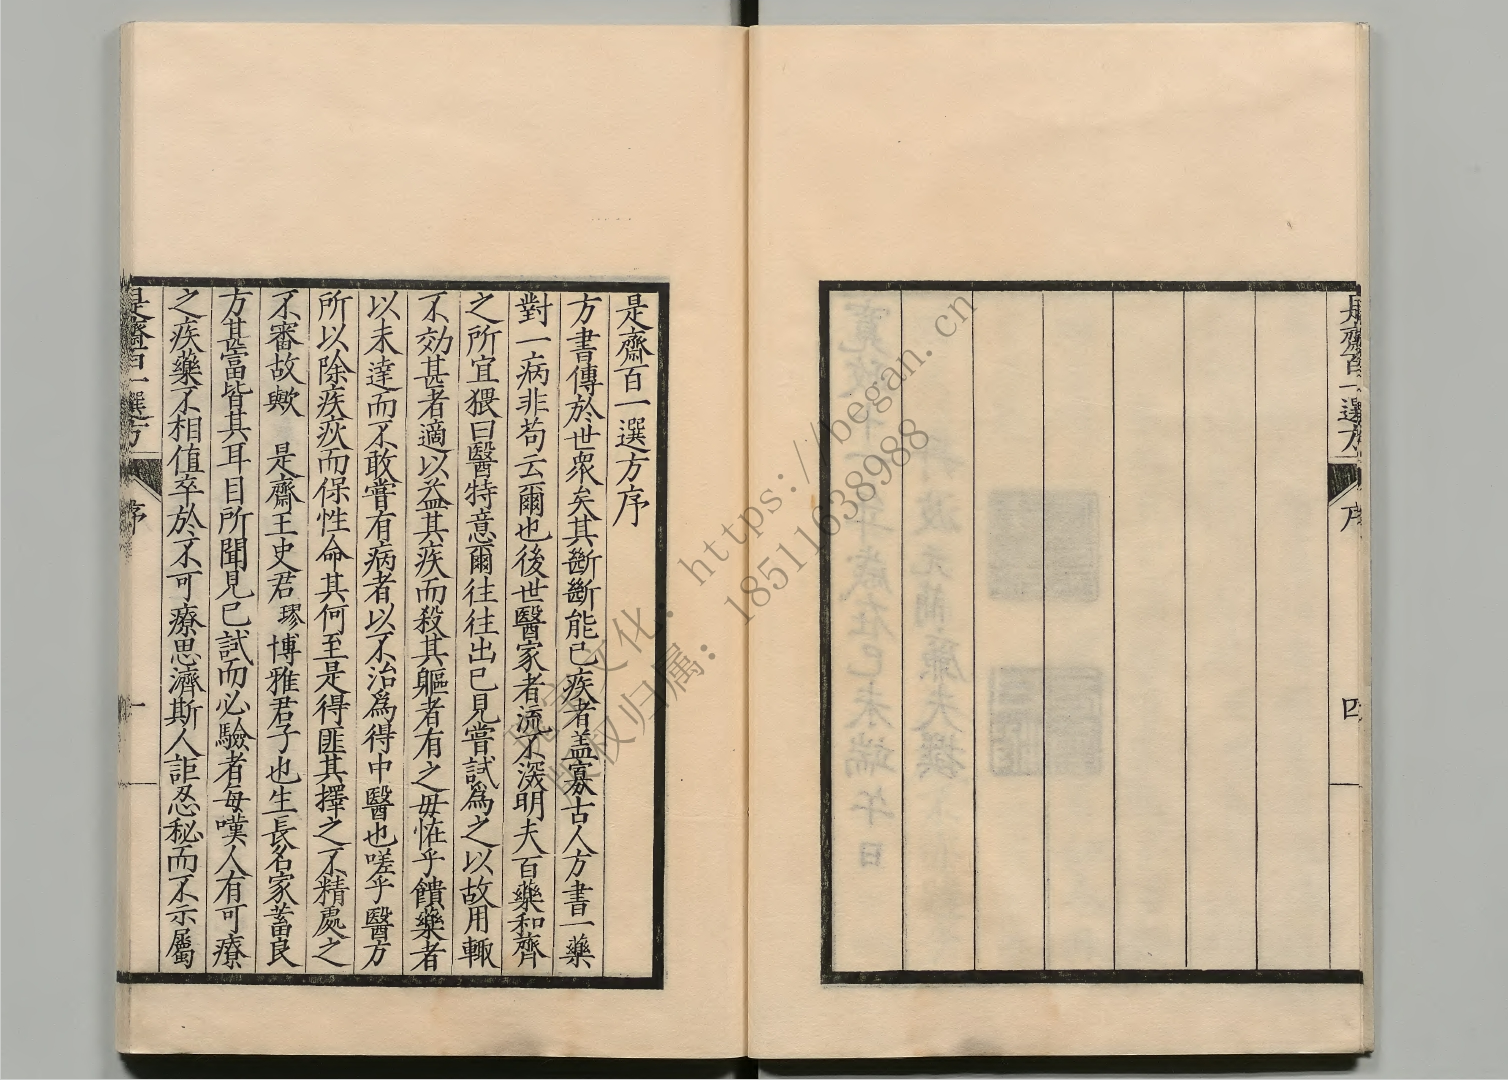 是齋百一選方
序
四
是齋百一選方序
方書傳於世衆矣其斷斷能已疾者盖寡古人方書一藥
對一病非苟云爾也後世醫家者流不深明夫百藥和齊
之所宜猥曰醫特意爾往往出已見嘗試爲之以故用輙
不効甚者適以益其疾而殺其軀者有之毋恠乎饋藥者
以未達而不敢嘗有病者以不治爲得中醫也嗟乎醫方
所以除疾疢而保性命其何至是得匪其擇之不精處之
不審故歟 是齋王史君璆博雅君子也生長名家蓄良
方甚富皆其耳目所聞見已試而必驗者每嘆人有可療
之疾藥不相值卒於不可療思濟斯人詎忍秘而不示屬
是齋百一選方
序
一
寬政十一年歲在己未端午日
丹波元簡廉夫撰
https://began.cn
版权归属：18511638988